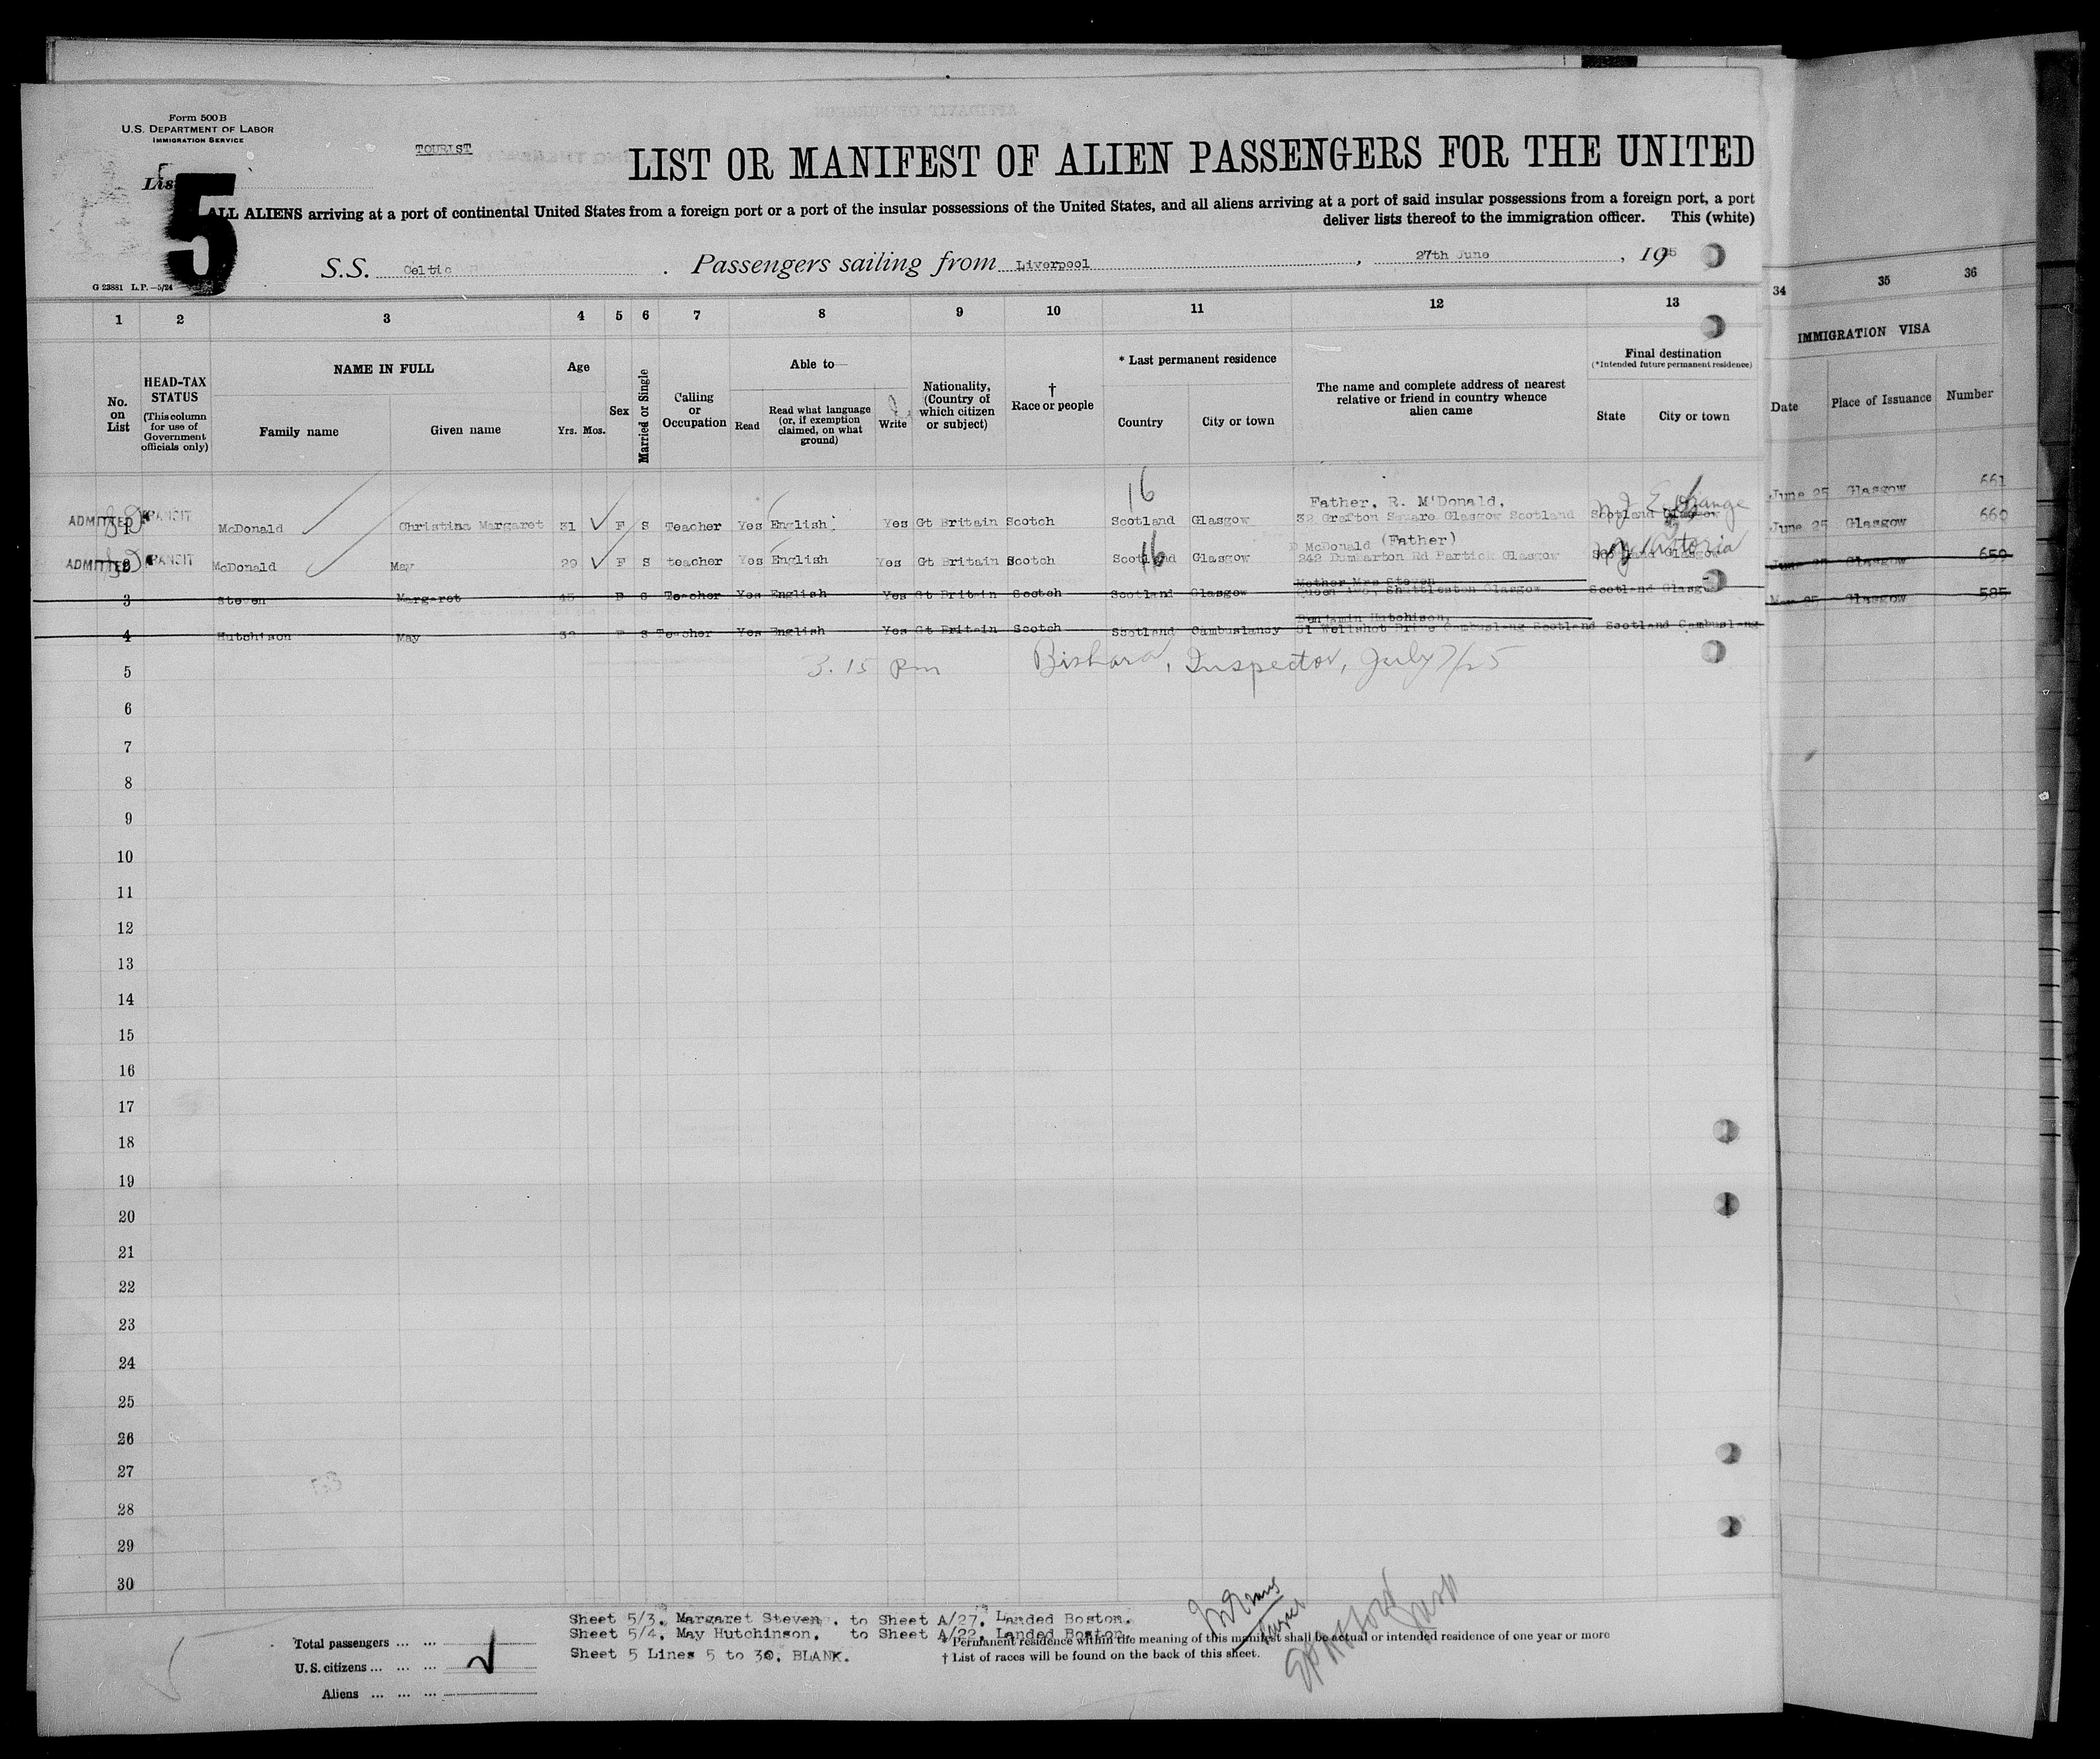 Form 500 B
U.S. DEPARTMENT OF LABOR
IMMIGRATION SERVICE
TOURIST
LIST OR MANIFEST OF ALIEN PASSENGERS FOR THE UNITED
List 5
ALL ALIENS arriving at a port of continental United States from a foreign port or a port of the insular possessions of the United States, and all aliens arriving at a port of said insular possessions from a foreign port, a port
deliver lists thereof to the immigration officer. This (white)
S.S. Celtic . Passengers sailing from Liverpool , 27th June , 1925
G 23881 L.P.—5/24
1 2 3 4 5 6 7 8 9 10 11 12 13 34 35 36
No. on List
HEAD-TAX STATUS (This column for use of Government officials only)
NAME IN FULL
Family name Given name
Age
Yrs. Mos.
Sex
Married or Single
Calling or Occupation
Able to—
Read Read what language (or, if exemption claimed, on what ground) Write
Nationality, (Country of which citizen or subject)
† Race or people
* Last permanent residence
Country City or town
The name and complete address of nearest relative or friend in country whence alien came
Final destination
(*Intended future permanent residence)
State City or town
IMMIGRATION VISA
Date Place of Issuance Number
16
Father, R. M'Donald,
ADMITTED 1 TRANSIT McDonald Christina Margaret 31 F S Teacher Yes English Yes Gt Britain Scotch Scotland Glasgow 32 Grafton Square Glasgow Scotland Scotland Glasgow N J E Orange June 25 Glasgow 661
16
McDonald (Father)
ADMITTED 2 TRANSIT McDonald May 29 F S teacher Yes English Yes Gt Britain Scotch Scotland Glasgow 242 Dumbarton Rd Partick Glasgow Scotland Glasgow June 25 Glasgow 660
Mother Mrs Steven
3 Steven Margaret 45 F S Teacher Yes English Yes Gt Britain Scotch Scotland Glasgow Shuttleston Glasgow Scotland Glasgow June 25 Glasgow 659
Benjamin Hutchison,
4 Hutchison May 32 F S Teacher Yes English Yes Gt Britain Scotch Scotland Cambuslancy 51 Wellshot Drive Cambuslang Scotland Scotland Cambuslang May 25 Glasgow 585
5 3.15 pm Bishara, Inspector, July 7/25
6
7
8
9
10
11
12
13
14
15
16
17
18
19
20
21
22
23
24
25
26
27
28
29
30
Sheet 5/3, Margaret Steven, to Sheet A/27, Landed Boston.
Sheet 5/4, May Hutchinson, to Sheet A/22, Landed Boston.
Sheet 5 Lines 5 to 30, BLANK.
Total passengers ... ...
U.S. citizens ... ... ...
Aliens ... ... ...
* Permanent residence within the meaning of this manifest shall be actual or intended residence of one year or more
† List of races will be found on the back of this sheet.